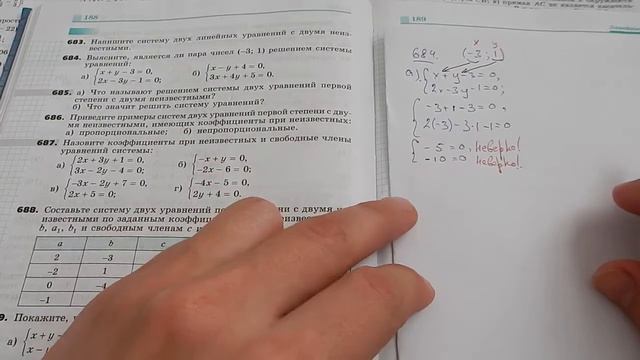 188
683. Напишите систему двух линейных уравнений с двумя неиз-
вестными.
684. Выясните, является ли пара чисел (−3; 1) решением
системы:
а) { x + y − 3 = 0, 2x − 3y − 1 = 0; б) { x − y + 4 = 0, 3x + 4y + 5 = 0.
685. а) Что называют решением системы двух уравнений первой
степени с двумя неизвестными?
б) Что значит решить систему уравнений?
686. Приведите примеры систем двух уравнений первой степени с дву-
мя неизвестными, имеющих коэффициенты при неизвестных:
а) пропорциональные; б) непропорциональные.
687. Назовите коэффициенты при неизвестных и свободные члены
уравнений системы:
а) { 2x + 3y + 1 = 0, 3x − 2y − 4 = 0; б) { −x + y = 0, −2x − 6 = 0;
в) { −3x − 2y + 7 = 0, 2x + 5 = 0; г) { −4x − 5 = 0, 2y + 4 = 0.
688. Составьте систему двух уравнений
известными по заданным коэффи
b, a₁, b₁ и свободным членам c и
a b c
2 −3
−2 1
0 −4
−1
9. Покажите,
а) { x + y − x −
189
x y
684. (−3; 1)
а) { x + y − 3 = 0, 2x − 3y − 1 = 0;
{ −3 + 1 − 3 = 0, 2(−3) − 3·1 − 1 = 0
{ −5 = 0, неверно!
−10 = 0 неверно!